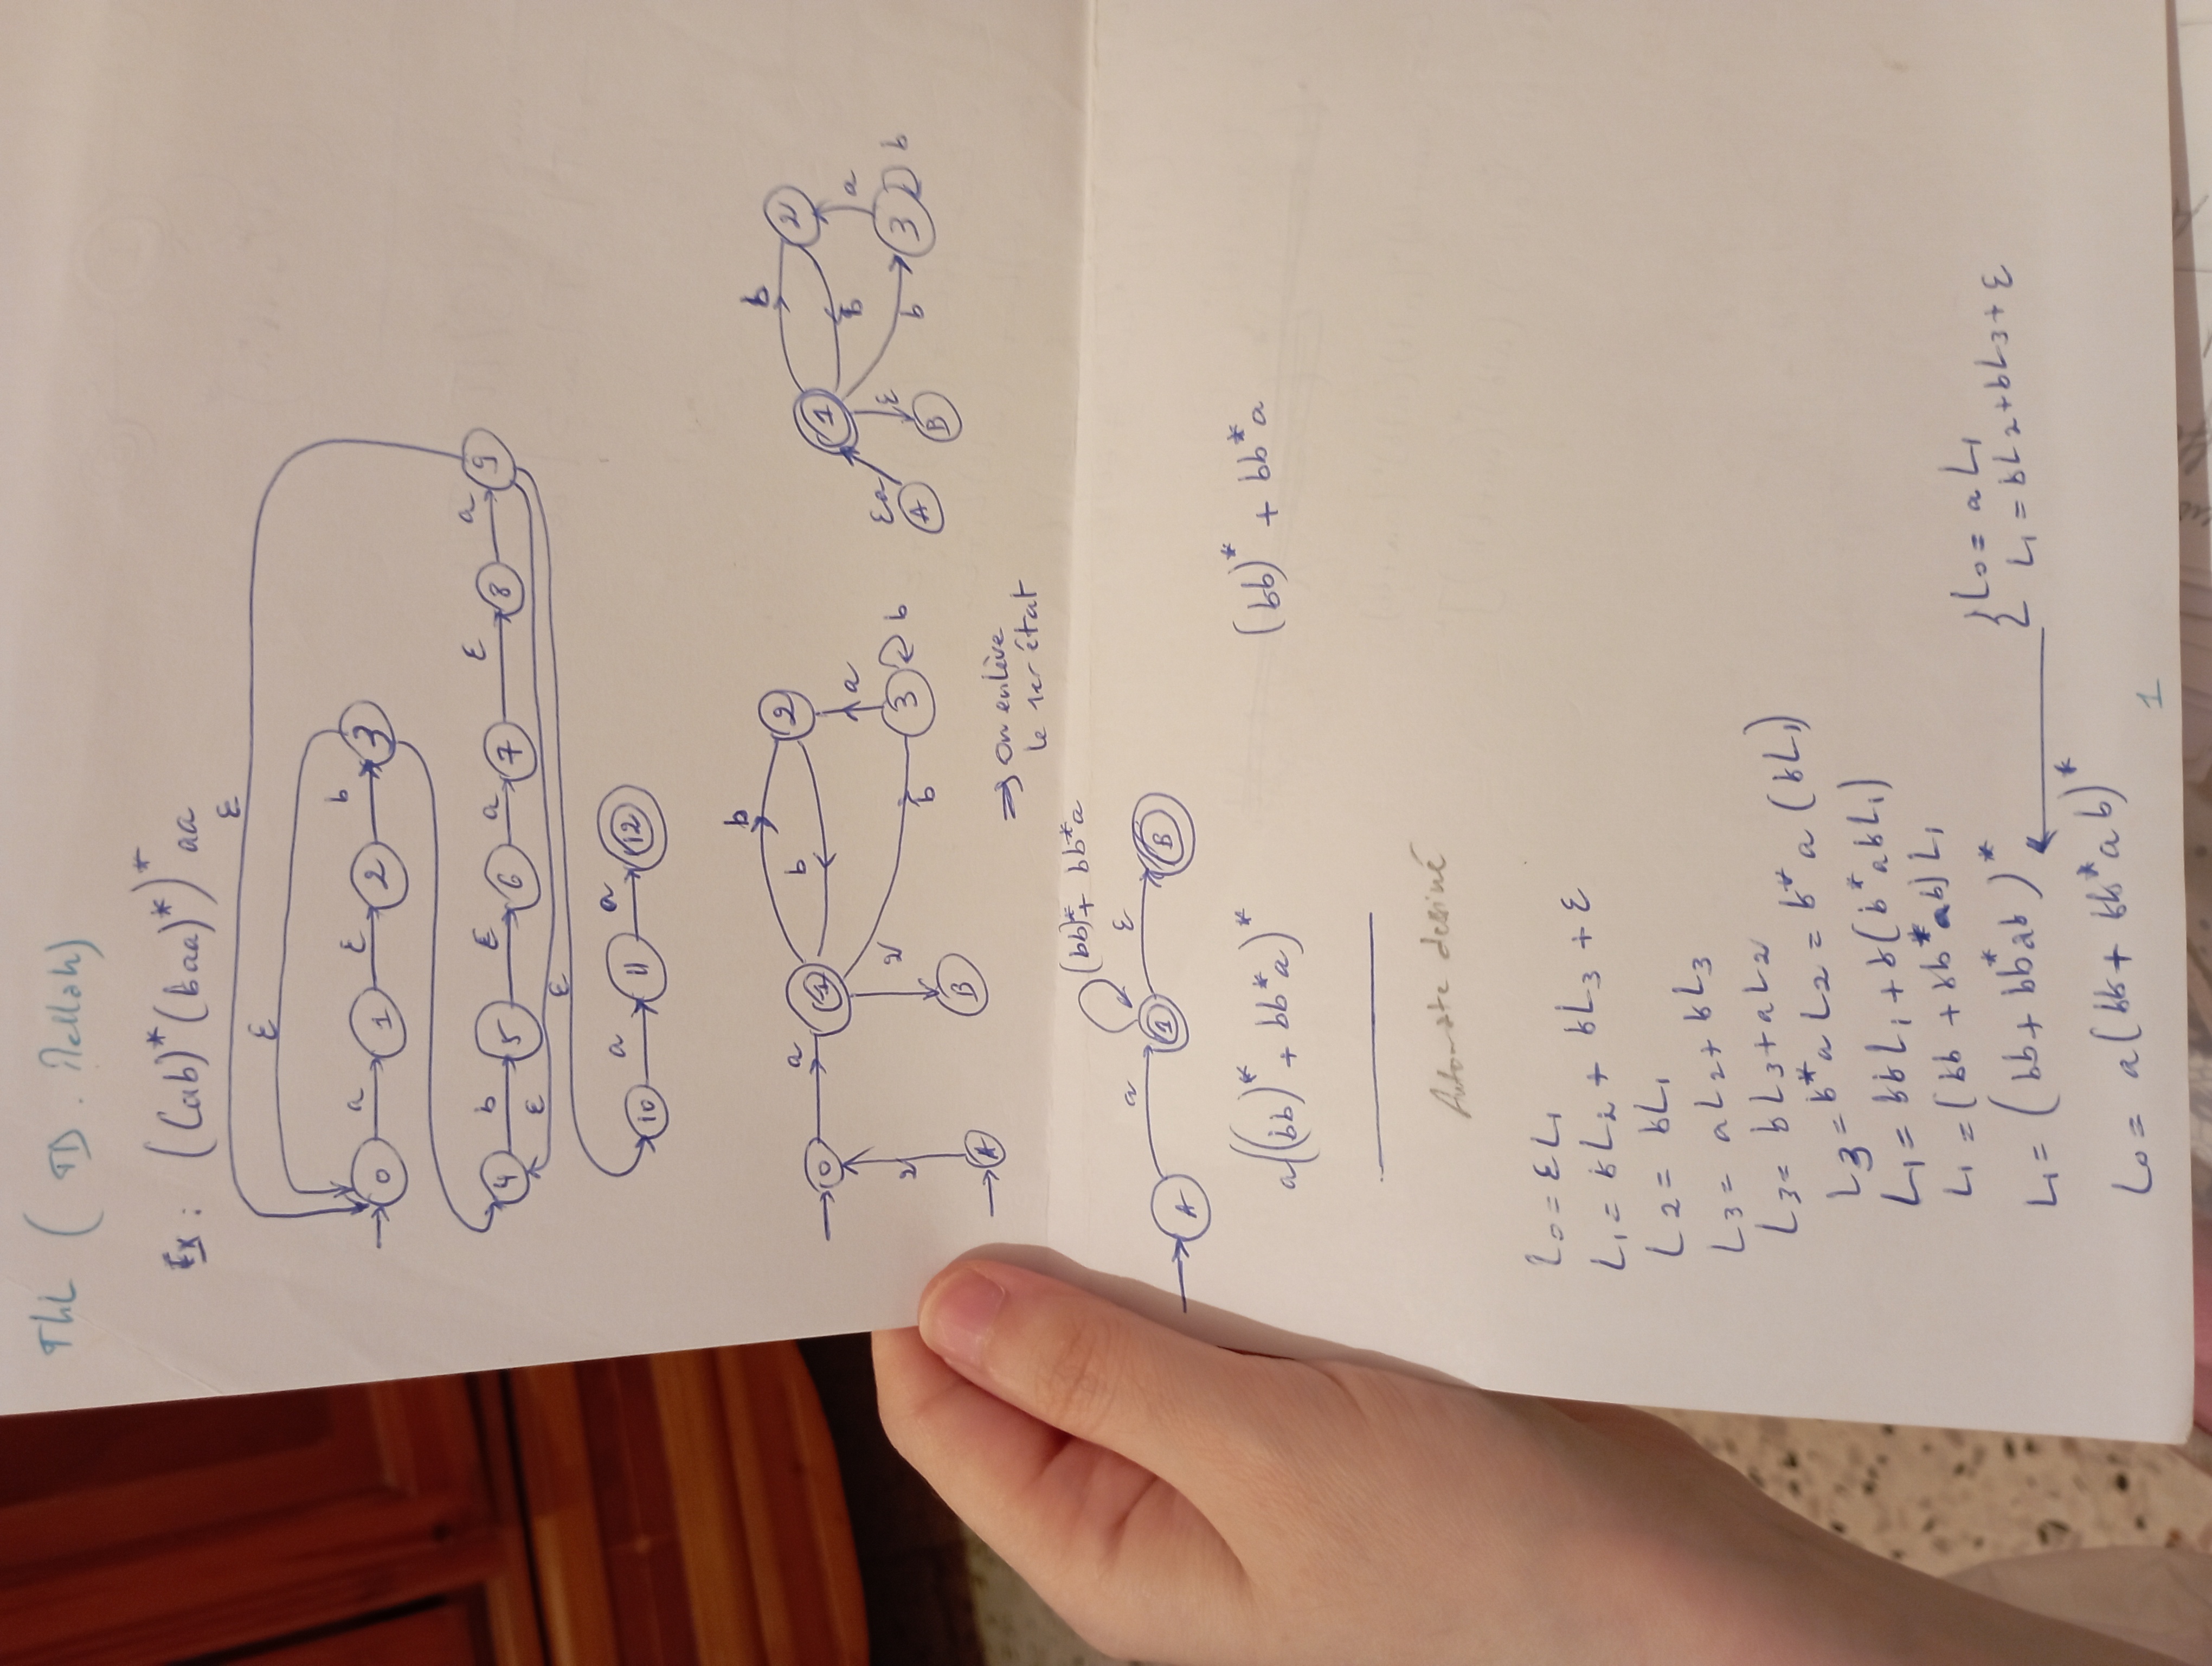 ThL ( TD. Mellah)
Ex : ((ab)*(baa)*)* aa
ε
ε
0 a 1 ε 2 b 3
4 b 5 ε 6 a 7 ε 8 a 9
ε
ε
10 a 11 a 12
b
0 a 1 b 2
a
b 3 b
B
A
b
1 b 2
εa ε a
A B b 3 b
⇒ on enlève
le 1er état
(bb)* + bb*a
A a 1 ε B
a((bb)* + bb*a)* (bb)* + bb*a
Automate dessiné
L0 = εL1
L1 = bL2 + bL3 + ε
L2 = bL1
L3 = aL2 + bL3
L3 = bL3 + aL2
L3 = b*a L2 = b*a (bL1)
L1 = bbL1 + b(b*abL1)
L1 = (bb + bb*ab) L1
{ L0 = aL1
L1 = bL2 + bL3 + ε
L1 = (bb + bb*ab)*
L0 = a(bb + bb*ab)*
1